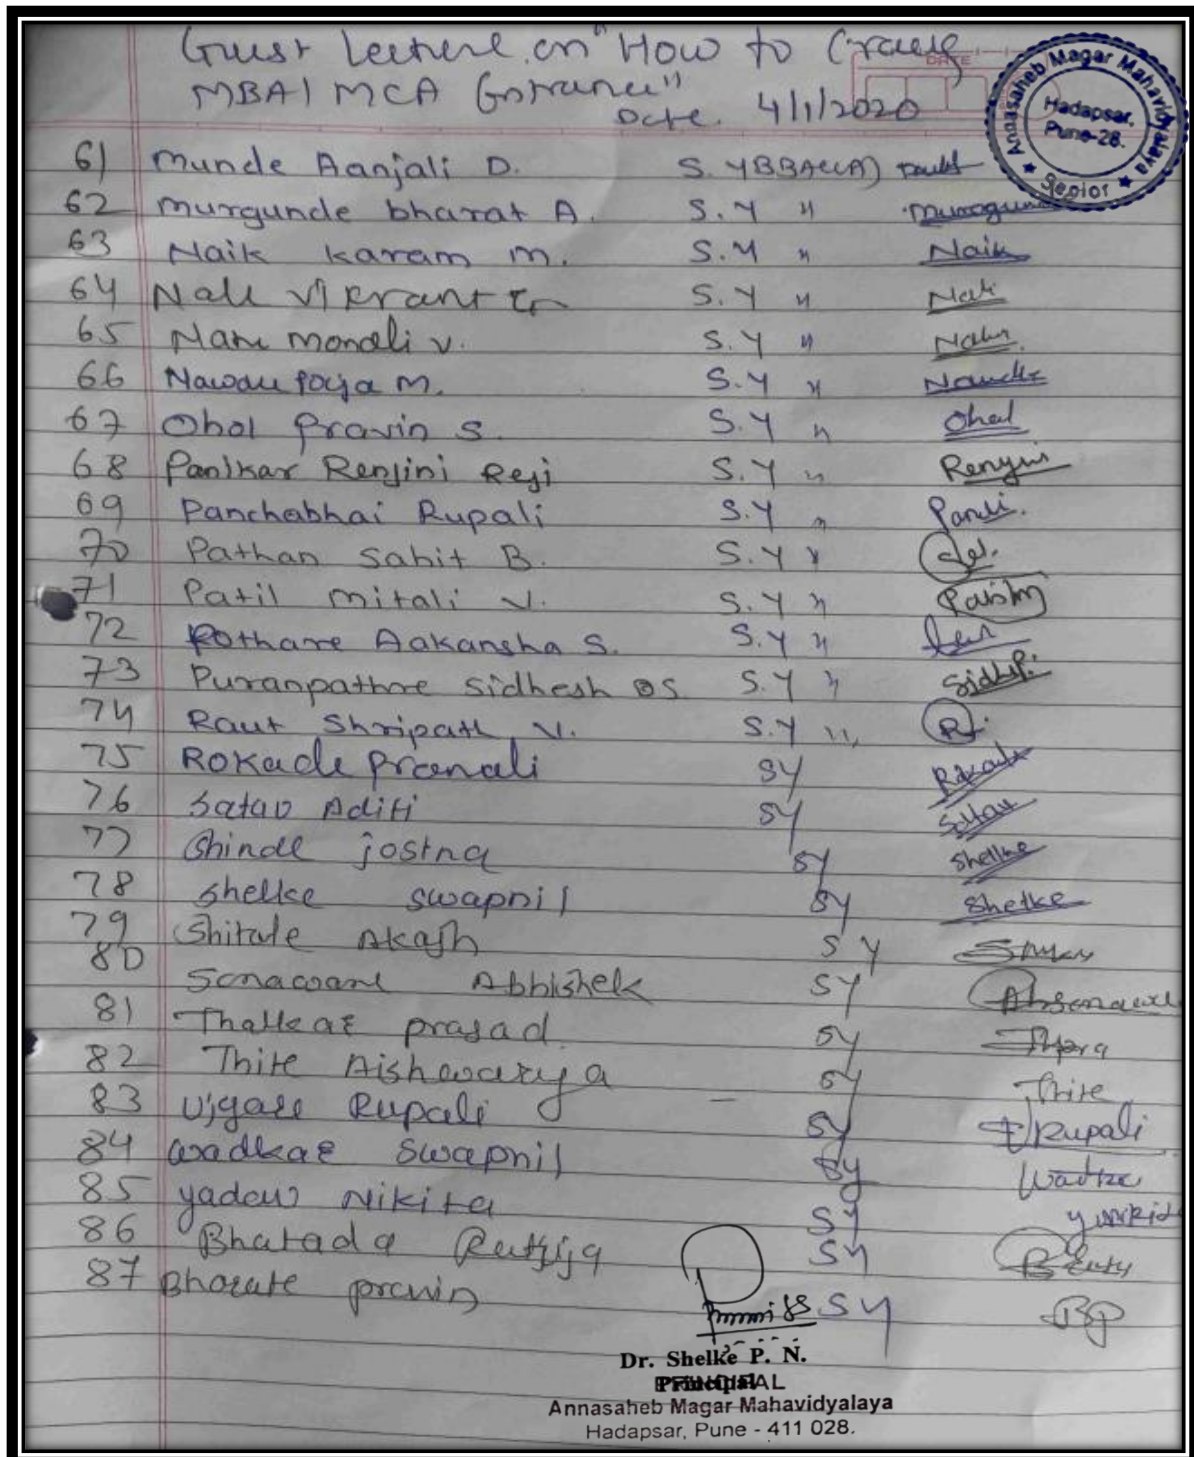 Guest Lecture on "How to Crack
MBA / MCA Entrance"
Date. 4/1/2020
DATE
Annasaheb Magar Mahavidyalaya
Hadapsar,
Pune-28.
Senior
61 Munde Aanjali D. S.Y BBA(CA)
62 Murgunde bharat A. S.Y "
63 Naik karam m. S.Y " Naik
64 Nale Vikrant S.Y "
65 monali v. S.Y "
66 M. S.Y "
67 Ohol Pravin S. S.Y " Ohol
68 Panikar Renjini Reji S.Y "
69 Panchabhai Rupali S.Y "
70 Pathan Sahit B. S.Y "
71 Patil mitali V. S.Y "
72 Pothare Aakansha S. S.Y "
73 Puranpathre Sidhesh S. S.Y "
74 Raut Shripath V. S.Y "
75 Rokade Pranali SY
76 Satav Aditi SY Satav
77 Shinde jostna SY Shelke
78 shelke swapnil SY Shelke
79 Shitole Akash SY
80 Sonawane Abhishek SY
81 Thalkar prasad SY
82 Thite Aishwarya SY Thite
83 Ujgare Rupali SY Rupali
84 Wadkar Swapnil SY
85 yadaw Nikita SY
86 Bhatada Rutuja SY
87 pravin SY BP
Dr. Shelke P. N.
Principal
PRINCIPAL
Annasaheb Magar Mahavidyalaya
Hadapsar, Pune - 411 028.